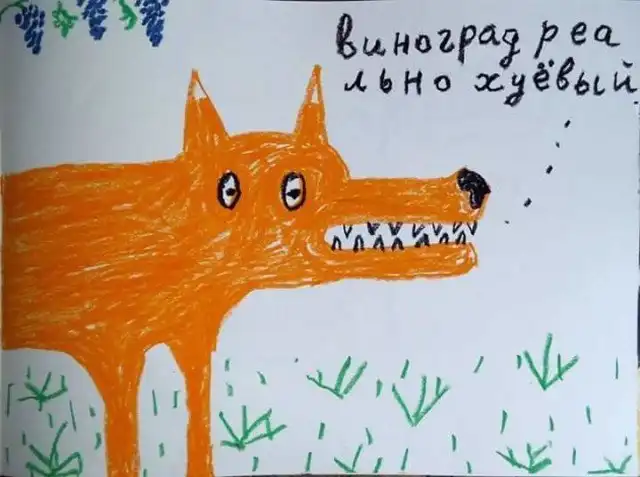 виноград реа
льно хуёвый